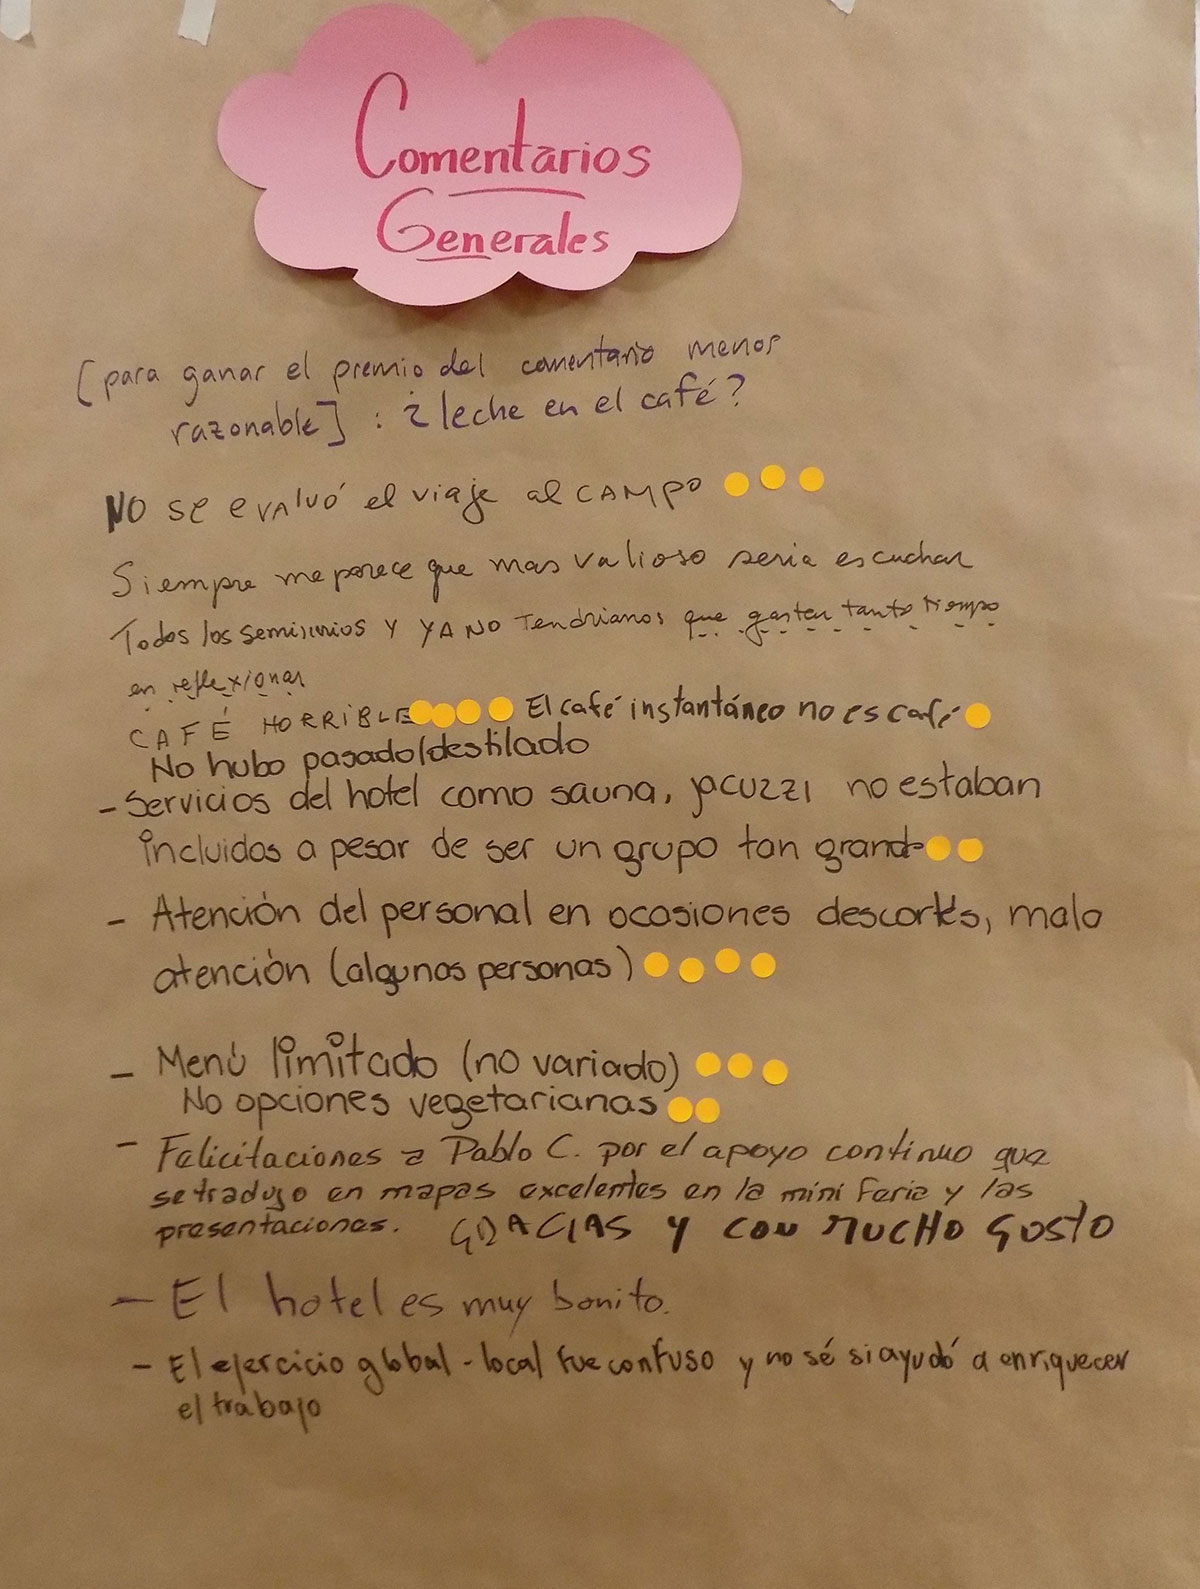 Comentarios
Generales
[para ganar el premio del comentario menos
razonable] : ¿leche en el café?
NO se evaluó el viaje al CAMPO
Siempre me parece que mas valioso seria escuchar
Todos los semisinios y YA NO Tendrianos que gasten tanto tiempo
en reflexionar
CAFÉ HORRIBLE El café instantáneo no es café
No hubo pasado/destilado
- Servicios del hotel como sauna, jacuzzi no estaban
incluidos a pesar de ser un grupo tan grande
- Atención del personal en ocasiones descortés, mala
atención (algunas personas)
- Menú limitado (no variado)
No opciones vegetarianas
- Felicitaciones a Pablo C. por el apoyo continuo que
se tradujo en mapas excelentes en la mini feria y las
presentaciones. GRACIAS Y CON MUCHO GUSTO
- El hotel es muy bonito.
- El ejercicio global - local fue confuso y no sé si ayudó a enriquecer
el trabajo